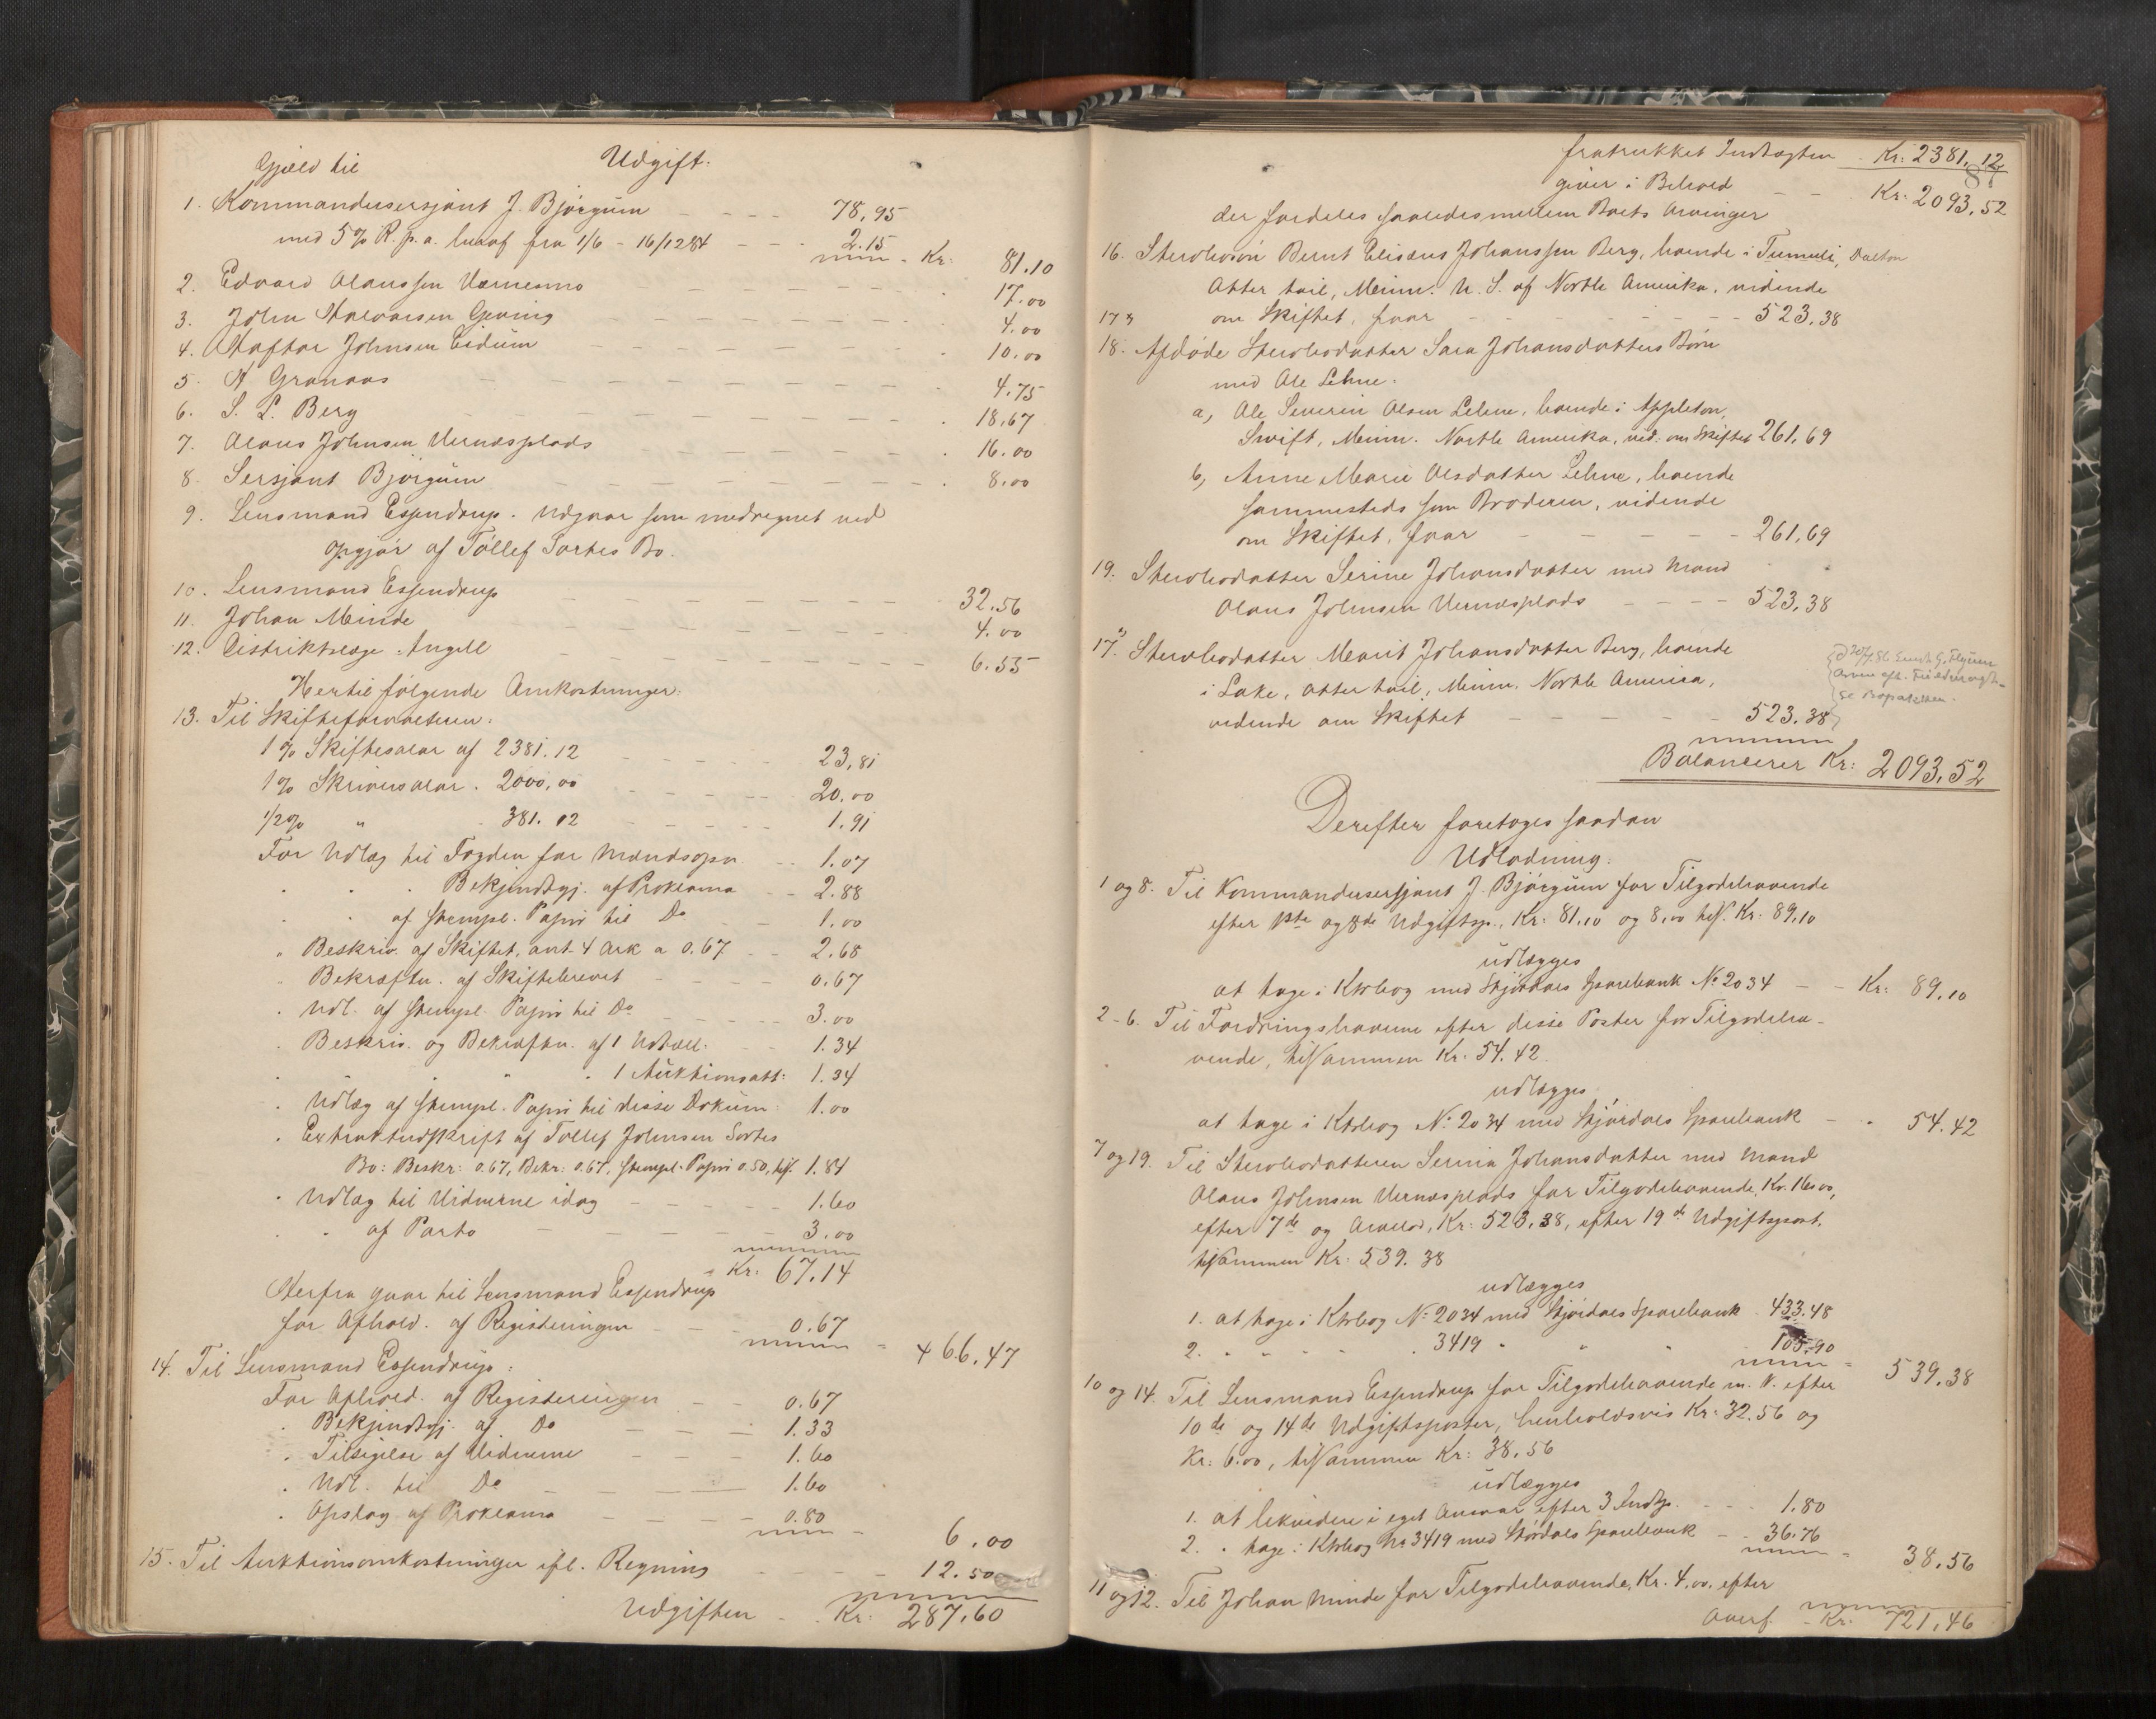 Udgift.
Gjæld til
1. Kommandersersjant J. Bjørgum - - - - 78,95
med 5% R. p. a. heraf fra 1/6 - 16/12 84 - - - 2.15 - Kr: 81.10
2. Edvard Olaussen Værnesmo - - - 17.00
3. John Halvorsen Geving - - - 4.00
4. Haftor Johnsen Eidum - - - 10.00
5. N Granaas - - - 4.75
6. S. L. Berg - - - 18,67
7. Olaus Johnsen Vernæsplads - - - 16.00
8. Sersjant Bjørgum - - - 8.00
9. Lensmand Essendrup. Udgaar som medregnet ved
opgjør af Tollef Sortes Bo.
10. Lensmand Essendrup - - - 32.56
11. Johan Minde - - - 4.00
12. Distriktslæge Angell - - - 6.55
Hertil følgende Omkostninger:
13. Til Skifteforvalteren:
1% Skiftesalar af 2381.12 - - - 23,81
1% Skriversalar . 2000,00 - - - 20.00
1/2% " - 381.12 - - - 1.91
For Udlæg til Fogden for Mandsopn. - - 1.07
" " " Bekjendtgj. af Proklama - - 2.88
" " af stempl. Papir til Do - - 1.00
" Beskriv. af Skiftet, ant. 4 Ark a 0.67 - - 2.68
" Bekræftn. af Skiftebrevet - - - 0.67
" Udl. af stempl. Papir til Do - - - 3.00
" Beskriv. og Bekræftn. af 1 Udtæll. - - 1.34
" " " " 1 Auktionsatt: 1.34
" Udlæg af stempl. Papir til disse Dokum: 1.00
" Extraktudskrift af Tollef Johnsen Sortes
Bo: Beskr: 0.67, Bekr: 0.67, stempl. Papir 0.50, tils. 1.84
" Udlæg til Vidnerne idag - - - 1.60
" " af Porto - - - 3.00
Kr: 67.14
Herfra gaar til Lensmand Essendrup
for Afhold. af Registeringen - - - 0.67 = 66.47
14. Til Lensmand Essendrup:
For Afhold. af Registeringen - - 0.67
" Bekjendtgj. af Do - - - 1.33
" Tilsigelse af Vidnerne - - - 1.60
" Udl. til Do - - - 1.60
" Opslag af Proklama - - - 0.80 = 6.00
15. Til Auktionsomkostninger ifl. Regning - - - 12.50
Udgiften - Kr: 287.60
87
fratrukket Indtægten - Kr: 2381.12
giver i Behold - - Kr: 2093.52
der fordeles saaledes mellem Boets Arvinger
16. Sterbosøn Bernt Elisæus Johanssen Berg, boende i Tumuli, Dalton
Otter tail, Minn. U. S. af North Amerika, vidende
17 om Skiftet, faar - - - 523.38
18. Afdøde Sterbodatter Sara Johansdatters Børn
med Ole Lehne:
a, Ole Severin Olsen Lehne, boende i Appleton,
Swift, Minn. North Amerika, vid: om Skiftet 261,69
b, Anne Marie Olsdatter Lehne, boende
sammesteds som Broderen, vidende
om Skiftet, faar - - - 261,69
19. Sterbodatter Serine Johansdatter med Mand
Olaus Johnsen Vernæsplads - - - 523,38
17. Sterbodatter Marit Johansdatter Berg, boende
i Lake, Otter tail, Minn. North America,
vidende om Skiftet - - - 523.38
Balancerer Kr: 2093,52
Derefter foretoges saadan
Udlodning:
1 og 8. Til Kommandersersjant J. Bjørgum for Tilgodehavende
efter 1ste og 8de Udgiftsp., Kr: 81.10 og 8,00 tils. Kr: 89,10
udlægges
at tage i Ktrbog med Stjørdals Sparebank No 2034 - - Kr: 89,10
2-6. Til Fordringshaverne efter disse Poster for Tilgodeha-
vende, tilsammen Kr: 54.42
udlægges
at tage i Ktrbog No 2034 med Stjørdals Sparebank - " 54.42
7 og 19. Til Sterbodatteren Serina Johansdatter med Mand
Olaus Johnsen Vernæsplads for Tilgodehavende, Kr. 16,00,
efter 7de og Arvelod, Kr: 523,38, efter 19de Udgiftspost,
tilsammen Kr: 539.38
udlægges
1. at tage i Ktrbog No 2034 med Stjørdals Sparebank - 433.48
2. " " " " " 3419 " " " 105.90 = 539.38
10 og 14. Til Lensmand Essendrup for Tilgodehavende m. V. efter
10de og 14de Udgiftsposter, henholdsvis Kr: 32.56 og
Kr: 6.00, tilsammen Kr: 38.56
udlægges
1. at likvidere i eget Ansvar efter 3 Indtp. - - - 1.80
2. " tage i Ktrbog No 3419 med Stjørdals Sparebank - - 36.76 = 38.56
11 og 12. Til Johan Minde for Tilgodehavende, Kr. 4,00, efter
Overf. - Kr: 721,46